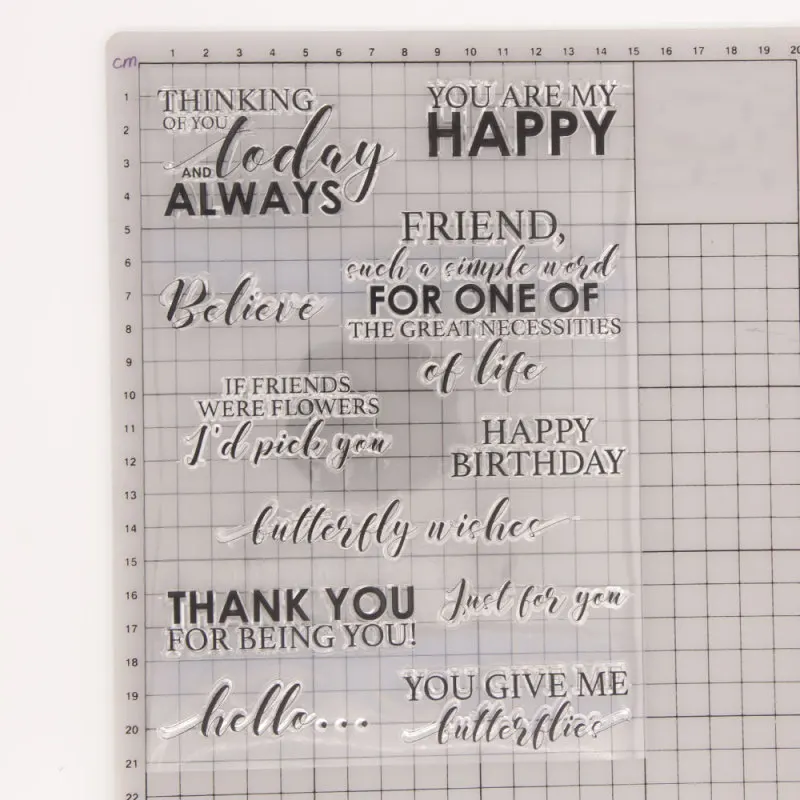 cm
1 2 3 4 5 6 7 8 9 10 11 12 13 14 15 16 17 18 19 20
1
2
3
4
5
6
7
8
9
10
11
12
13
14
15
16
17
18
19
20
21
22
THINKING
OF YOU today
AND
ALWAYS
YOU ARE MY
HAPPY
FRIEND,
such a simple word
FOR ONE OF
THE GREAT NECESSITIES
of life
Believe
IF FRIENDS
WERE FLOWERS
I'd pick you
HAPPY
BIRTHDAY
butterfly wishes
THANK YOU
FOR BEING YOU!
Just for you
hello...
YOU GIVE ME
butterflies